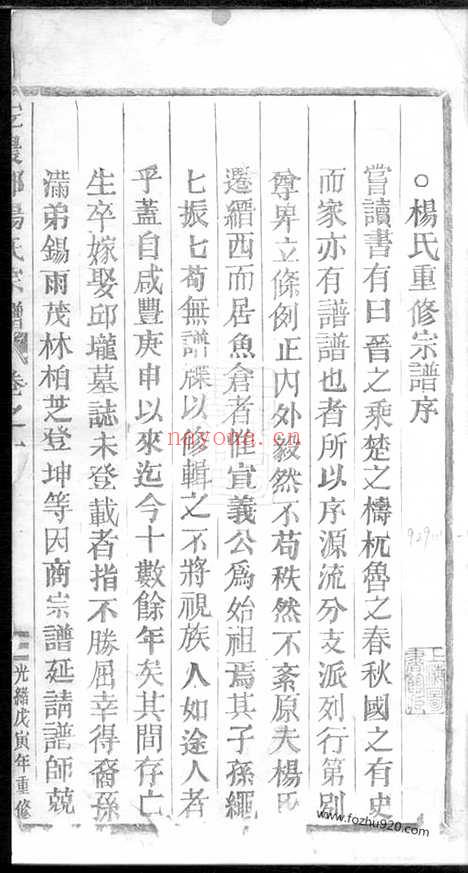 ○楊氏重修宗譜序
嘗讀書有曰晉之乘楚之檮杌魯之春秋國之有史
而家亦有譜譜也者所以序源流分支派列行第別
尊卑立條例正內外毅然不苟秩然不紊原夫楊氏
遷縉西而居魚倉者惟宣義公為始祖焉其子孫繩
匕振匕苟無譜牒以修輯之不將視族人如途人者
乎蓋自咸豐庚申以來迄今十數餘年矣其間存亡
生卒嫁娶邱壠墓誌未登載者指不勝屈幸得裔孫
滿弟錫雨茂林柏芝登坤等因商宗譜延請譜師兢
楊氏宗譜 卷之一
光緒戊寅年重修
nayong.cn
www.fozhu920.com